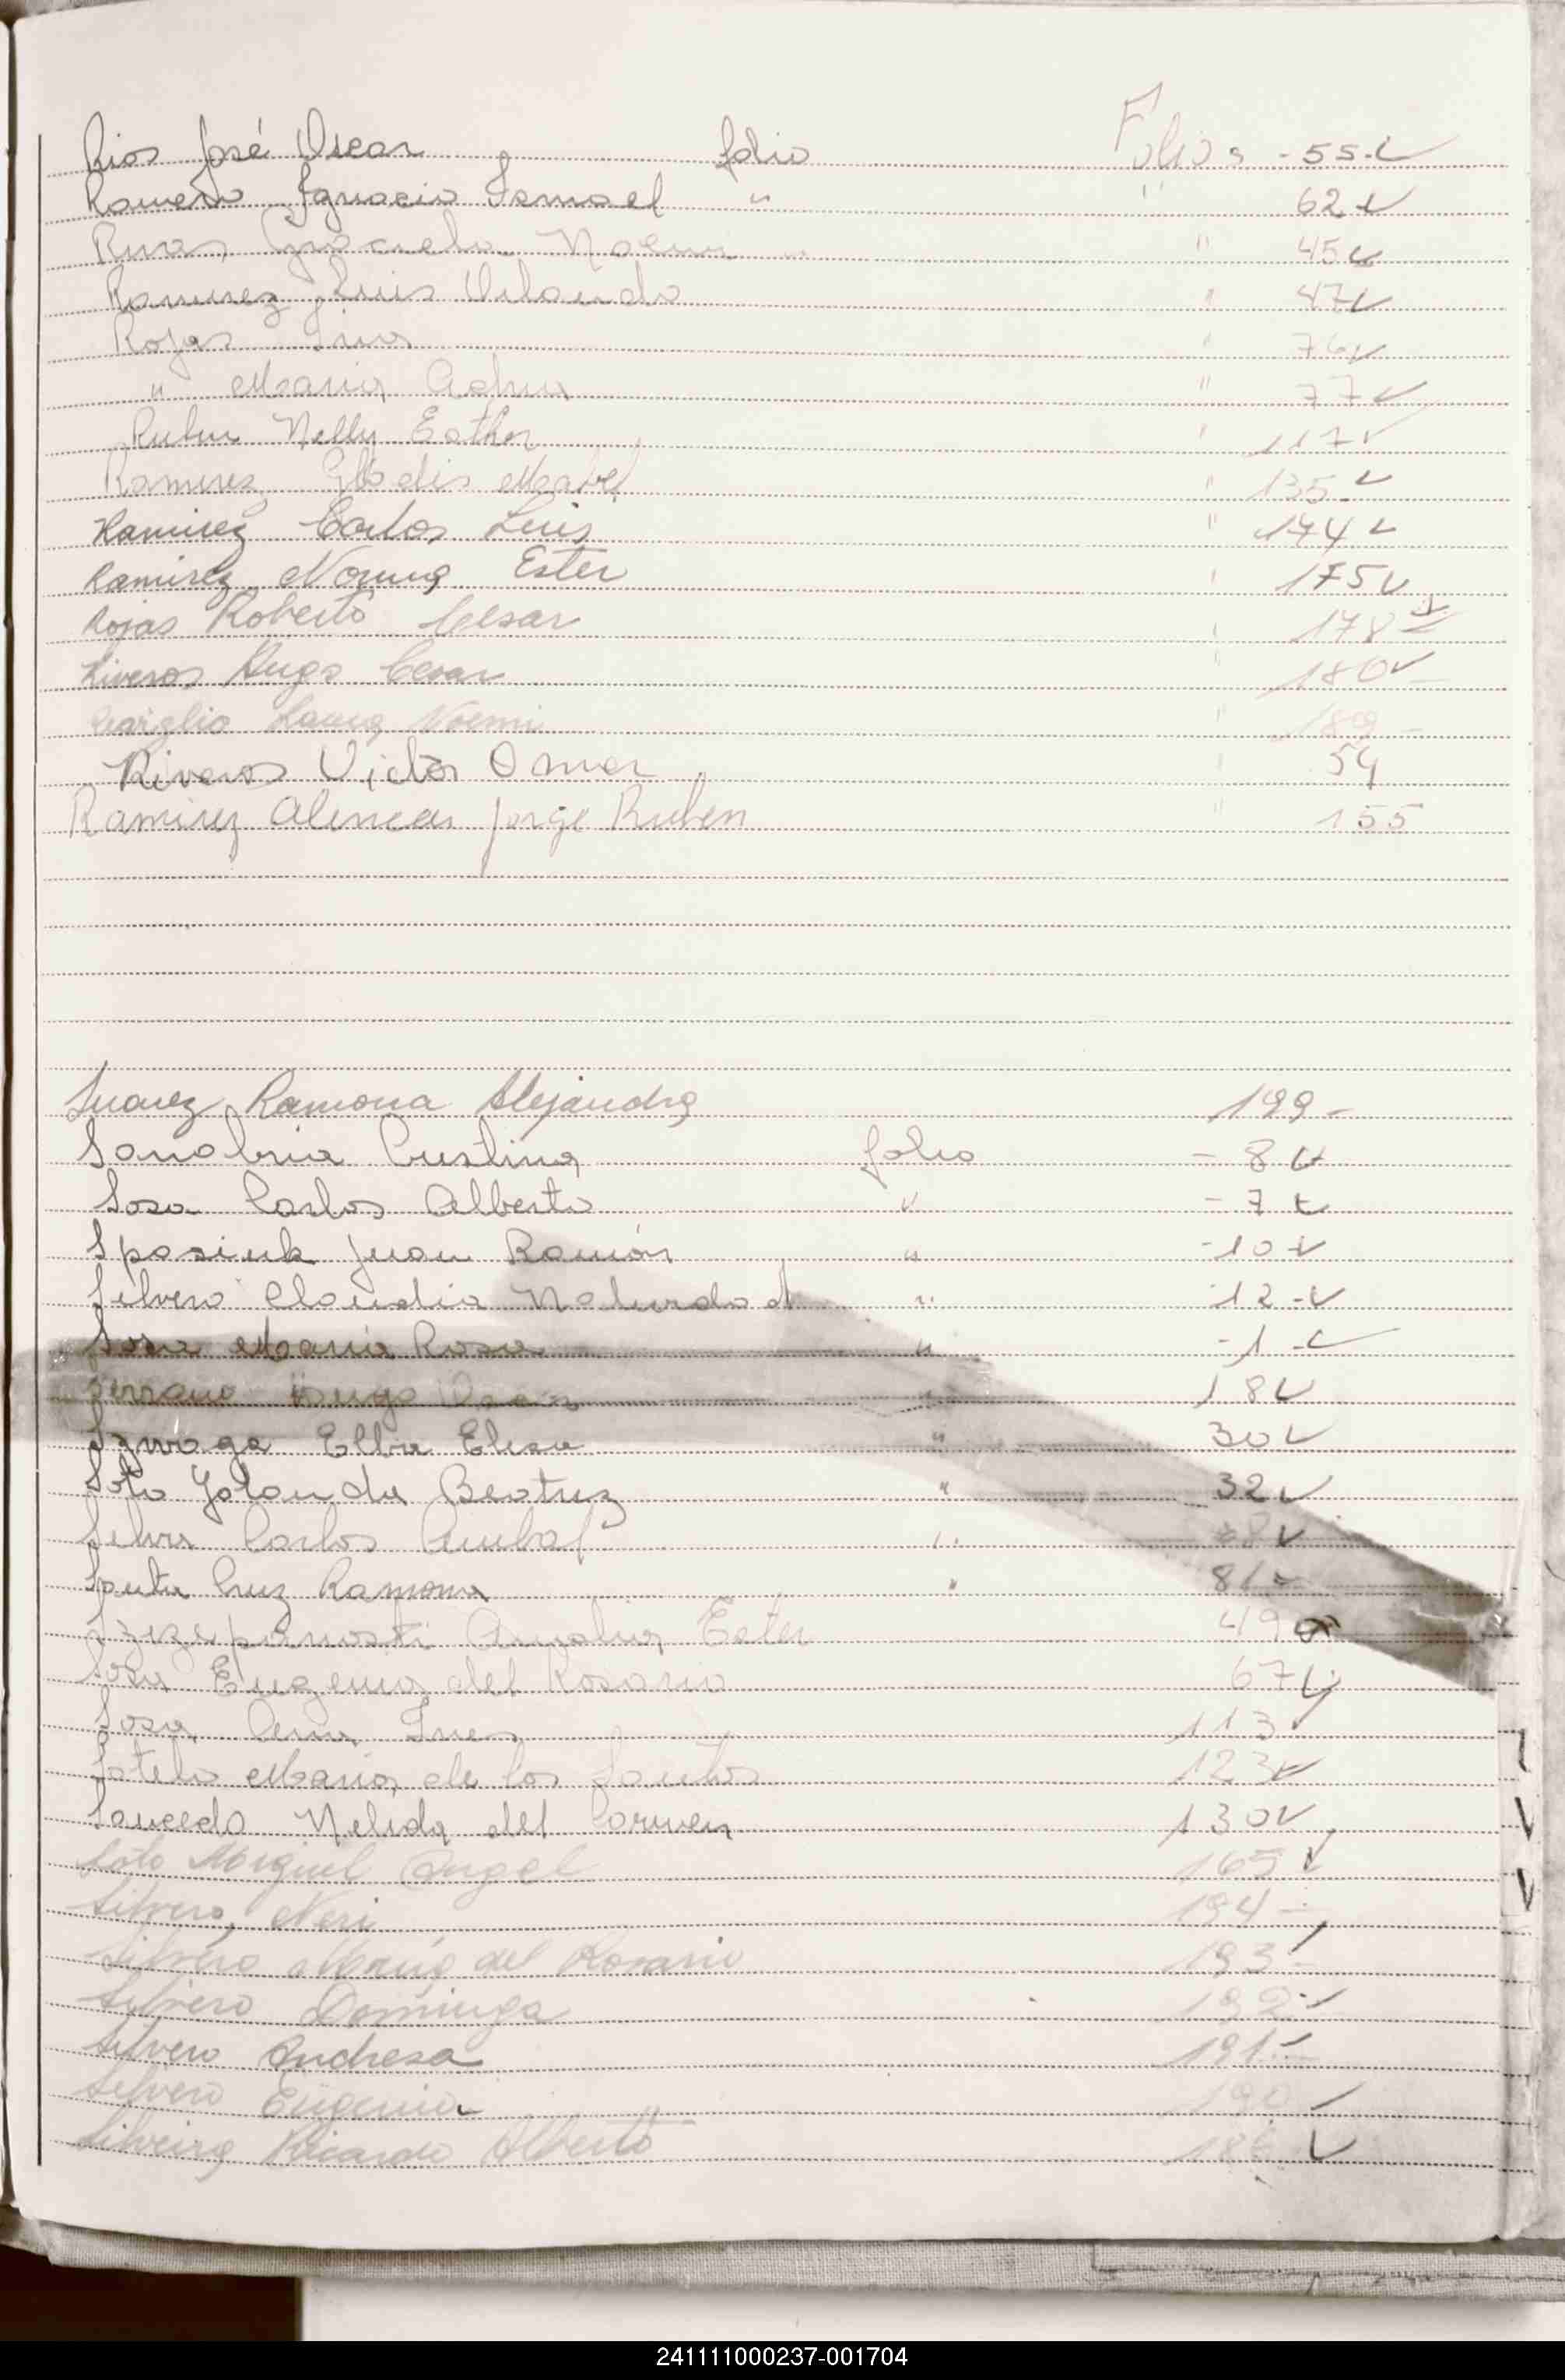 Rios José Oscar folio Folios - 55 - ✓
Romero Ignacio Ismael " " 62 ✓
Rivas Graciela Noemi " " 45 ✓
Ramirez Luis Orlando " 47 ✓
Rojas Irma " 76 ✓
" Maria " 77 ✓
Nelly Esther " 117 ✓
Ramirez Gladis Mabel " 135 ✓
Ramirez Carlos Luis " 174 ✓
Ramirez Norma Ester " 175 ✓
Rojas Roberto Cesar " 178
Riveros Hugo Cesar " 180 ✓
Laura Noemi " 189 -
Riveros Victor Omar " 54
Ramirez Jorge Ruben " 155
Suarez Ramona Alejandra 199 -
Sanabria Cristina folio - 8 ✓
Sosa Carlos Alberto " - 7 ✓
Sposiuk Juan Ramón " - 10 ✓
Silvero Claudia Natividad " 12 - ✓
Sosa Maria Rosa " - 1 - ✓
Serrano Hugo Oscar " 18 ✓
Elba Elisa " 30 ✓
Soto Yolanda Beatriz " 32 ✓
Silva Carlos Anibal " ✓
Santa Cruz Ramona " 81
Ester 49
Sosa Eugenia del Rosario 67 ✓
Sosa Ana Ines 113 ✓
Sotelo Maria de los Santos 123 ✓
Saucedo Nelida del Carmen 130 ✓
Soto Miguel Angel 165 ✓
Silvero, Neri 194 -
Silvero Maria del Rosario 193 -
Silvero Dominga 192 ✓
Silvero Andresa 191 -
Silvero Eugenia 190 ✓
Silveira Ricardo Alberto 186 ✓
241111000237-001704